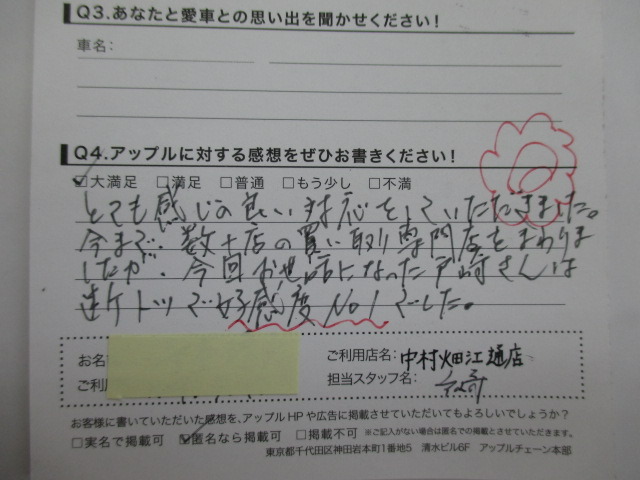 Q3.あなたと愛車との思い出を聞かせください！
車名：
Q4.アップルに対する感想をぜひお書きください！
☑大満足 □満足 □普通 □もう少し □不満
とても感じの良い対応をしていただきました。
今まで、数十店の買い取り専門店をまわりま
したが、今回お世話になった戸崎さんは
速ケトツで好感度No1でした。
お名
ご利用店名：中村畑江通店
ご利
担当スタッフ名：
お客様に書いていただいた感想を、アップルHPや広告に掲載させていただいてもよろしいでしょうか？
□実名で掲載可 ☑匿名なら掲載可 □掲載不可 ※ご記入がない場合は匿名での掲載とさせていただきます。
東京都千代田区神田岩本町1番地5 清水ビル6F アップルチェーン本部